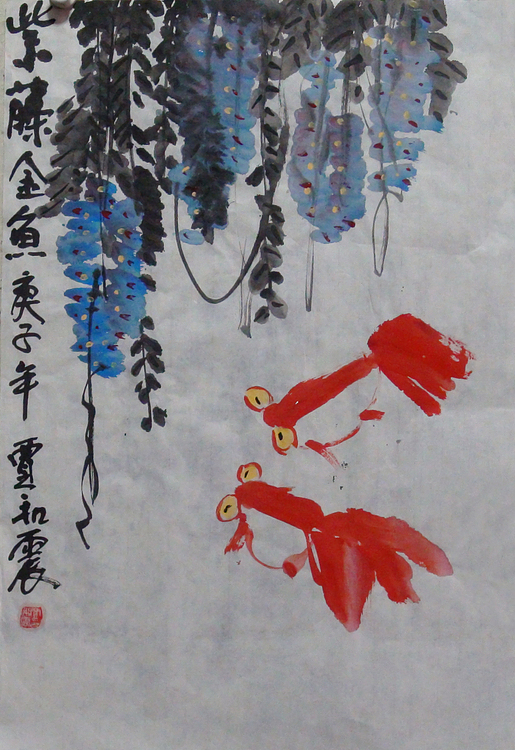 紫藤金鱼庚子年 賈和震